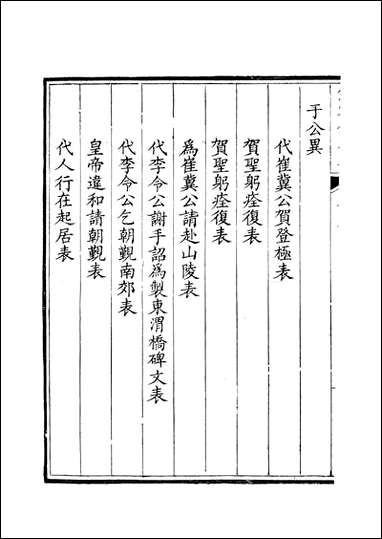 于公異
代崔冀公賀登極表
賀聖躬痊復表
賀聖躬痊復表
爲崔冀公請赴山陵表
代李令公謝手詔爲製東渭橋碑文表
代李令公乞朝覲南郊表
皇帝違和請朝覲表
代人行在起居表